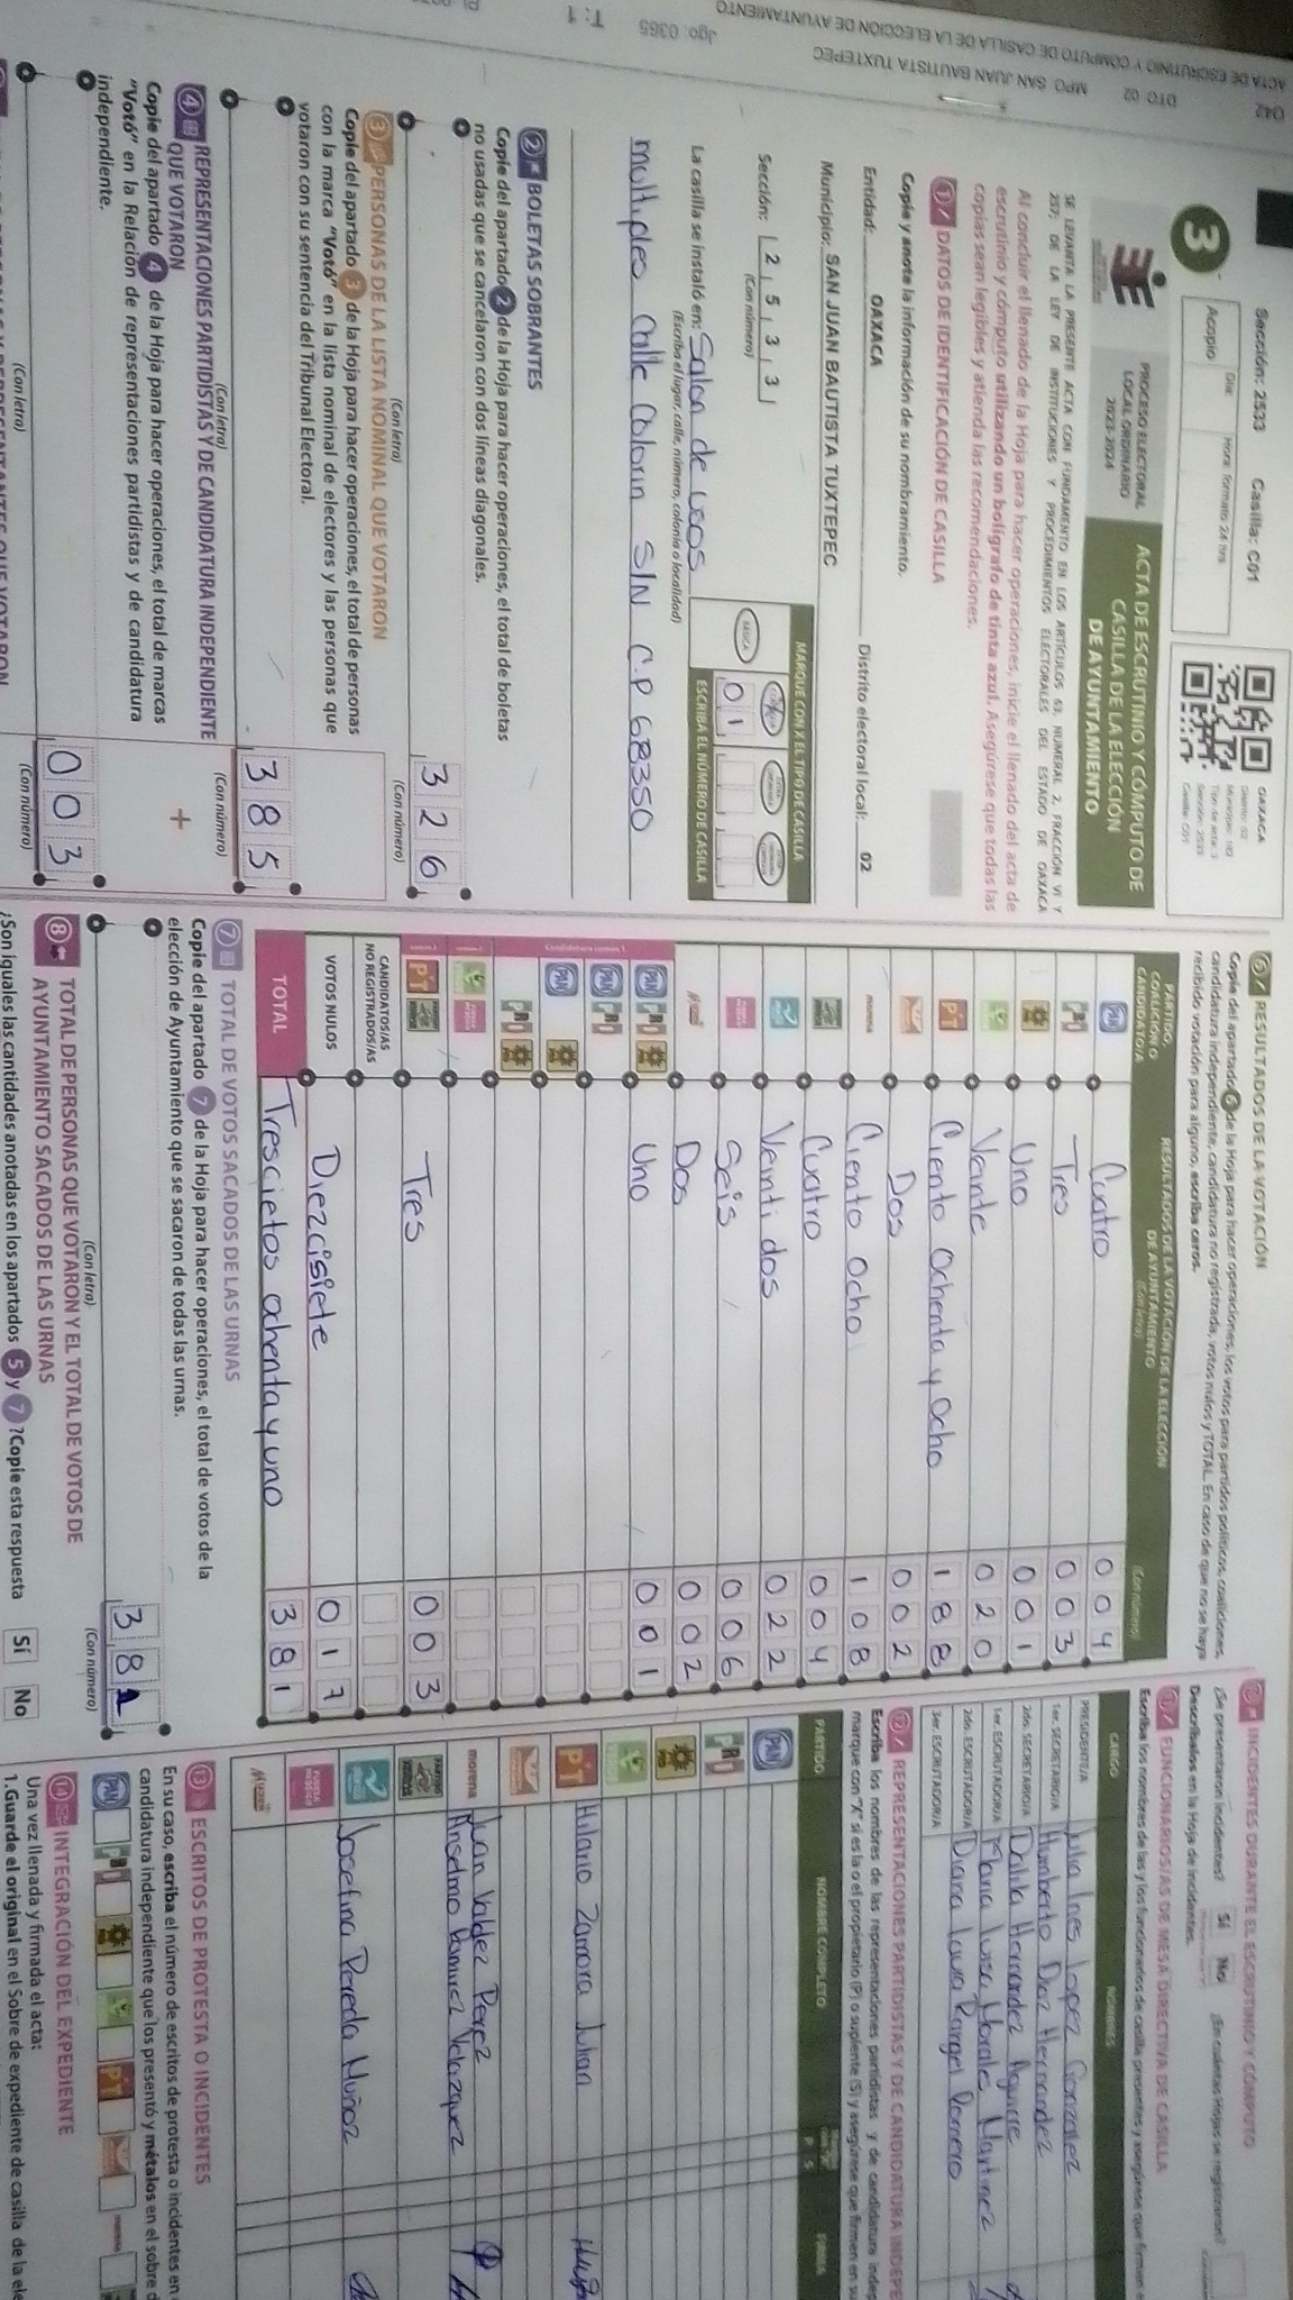 Q42
DTO 02
MPO SAN JUAN BAUTISTA TUXTEPEC
Jgo. 0365
T: 1
ACTA DE ESCRUTINIO Y CÓMPUTO DE CASILLA DE LA ELECCIÓN DE AYUNTAMIENTO
Sección: 2533 Casilla: C01
3
Acopio
Día:
Hora: formato 24 hrs
OAXACA
PROCESO ELECTORAL
LOCAL ORDINARIO
2023-2024
ACTA DE ESCRUTINIO Y CÓMPUTO DE
CASILLA DE LA ELECCIÓN
DE AYUNTAMIENTO
SE LEVANTA LA PRESENTE ACTA CON FUNDAMENTO EN LOS ARTÍCULOS 63, NUMERAL 2, FRACCIÓN VI Y
237; DE LA LEY DE INSTITUCIONES Y PROCEDIMIENTOS ELECTORALES DEL ESTADO DE OAXACA
Al concluir el llenado de la Hoja para hacer operaciones, inicie el llenado del acta de
escrutinio y cómputo utilizando un bolígrafo de tinta azul. Asegúrese que todas las
copias sean legibles y atienda las recomendaciones.
1 DATOS DE IDENTIFICACIÓN DE CASILLA
Copie y anote la información de su nombramiento.
Entidad: OAXACA Distrito electoral local: 02
Municipio: SAN JUAN BAUTISTA TUXTEPEC
Sección: 2 5 3 3
(Con número)
MARQUE CON X EL TIPO DE CASILLA
BÁSICA
0 1
ESCRIBA EL NÚMERO DE CASILLA
La casilla se instaló en: Salon de usos
(Escriba el lugar, calle, número, colonia o localidad)
multiples Calle Colorin S/N C.P 68350
2 BOLETAS SOBRANTES
Copie del apartado 2 de la Hoja para hacer operaciones, el total de boletas
no usadas que se cancelaron con dos líneas diagonales.
3 2 6
(Con letra) (Con número)
3 PERSONAS DE LA LISTA NOMINAL QUE VOTARON
Copie del apartado 3 de la Hoja para hacer operaciones, el total de personas
con la marca "Votó" en la lista nominal de electores y las personas que
votaron con su sentencia del Tribunal Electoral.
3 8 5
(Con letra) (Con número)
4 REPRESENTACIONES PARTIDISTAS Y DE CANDIDATURA INDEPENDIENTE
QUE VOTARON
+
Copie del apartado 4 de la Hoja para hacer operaciones, el total de marcas
"Votó" en la Relación de representaciones partidistas y de candidatura
independiente.
0 0 3
(Con letra) (Con número)
6 RESULTADOS DE LA VOTACIÓN
Copie del apartado 6 de la Hoja para hacer operaciones, los votos para partidos políticos, coaliciones,
candidatura independiente, candidatura no registrada, votos nulos y TOTAL. En caso de que no se haya
recibido votación para alguno, escriba ceros.
PARTIDO,
COALICIÓN O
CANDIDATO/A
RESULTADOS DE LA VOTACIÓN DE LA ELECCIÓN
DE AYUNTAMIENTO
(Con letra)
(Con número)
PAN Cuatro 0 0 4
PRI Tres 0 0 3
Uno 0 0 1
Veinte 0 2 0
PT Ciento Ochenta y Ocho 1 8 8
Dos 0 0 2
morena Ciento Ocho 1 0 8
Cuatro 0 0 4
Veinti dos 0 2 2
Seis 0 0 6
Dos 0 0 2
PAN PRI PRD Uno 0 0 1
PAN PRI
PAN PRD
PRI PRD
PT Tres 0 0 3
CANDIDATOS/AS
NO REGISTRADOS/AS
VOTOS NULOS Diezcisiete 0 1 7
TOTAL Trescietos ochenta y uno 3 8 1
7 TOTAL DE VOTOS SACADOS DE LAS URNAS
Copie del apartado 7 de la Hoja para hacer operaciones, el total de votos de la
elección de Ayuntamiento que se sacaron de todas las urnas.
3 8 1
(Con letra) (Con número)
8 TOTAL DE PERSONAS QUE VOTARON Y EL TOTAL DE VOTOS DE
AYUNTAMIENTO SACADOS DE LAS URNAS
¿Son iguales las cantidades anotadas en los apartados 5 y 7 ? Copie esta respuesta Sí No
INCIDENTES DURANTE EL ESCRUTINIO Y CÓMPUTO
¿Se presentaron incidentes? Sí No
Descríbalos en la Hoja de incidentes.
FUNCIONARIOS/AS DE MESA DIRECTIVA DE CASILLA
Escriba los nombres de las y los funcionarios de casilla presentes y asegúrese que firmen
CARGO NOMBRES
PRESIDENTE/A Julia Ines Lopez Gonzalez
1er. SECRETARIO/A Humberto Diaz Hernandez
2do. SECRETARIO/A Dalila Hernandez Aguirre
1er. ESCRUTADOR/A Maria Luisa Morales Martinez
2do. ESCRUTADOR/A Diana Laura Rangel Romero
3er. ESCRUTADOR/A
12 REPRESENTACIONES PARTIDISTAS Y DE CANDIDATURA INDEPE
Escriba los nombres de las representaciones partidistas y de candidatura indep
marque con "X" si es la o el propietario (P) o suplente (S) y asegúrese que firmen en su
PARTIDO NOMBRE COMPLETO P S FIRMA
PAN
PRI
PRD
PT Hilario Zamora Julian
morena Juan Valdez Perez
Anselmo Ramirez Velazquez
Josefina Pereda Muñoz
MUJER
13 ESCRITOS DE PROTESTA O INCIDENTES
En su caso, escriba el número de escritos de protesta o incidentes en
candidatura independiente que los presentó y métalos en el sobre d
PAN PRI PT
14 INTEGRACIÓN DEL EXPEDIENTE
Una vez llenada y firmada el acta:
1. Guarde el original en el Sobre de expediente de casilla de la ele